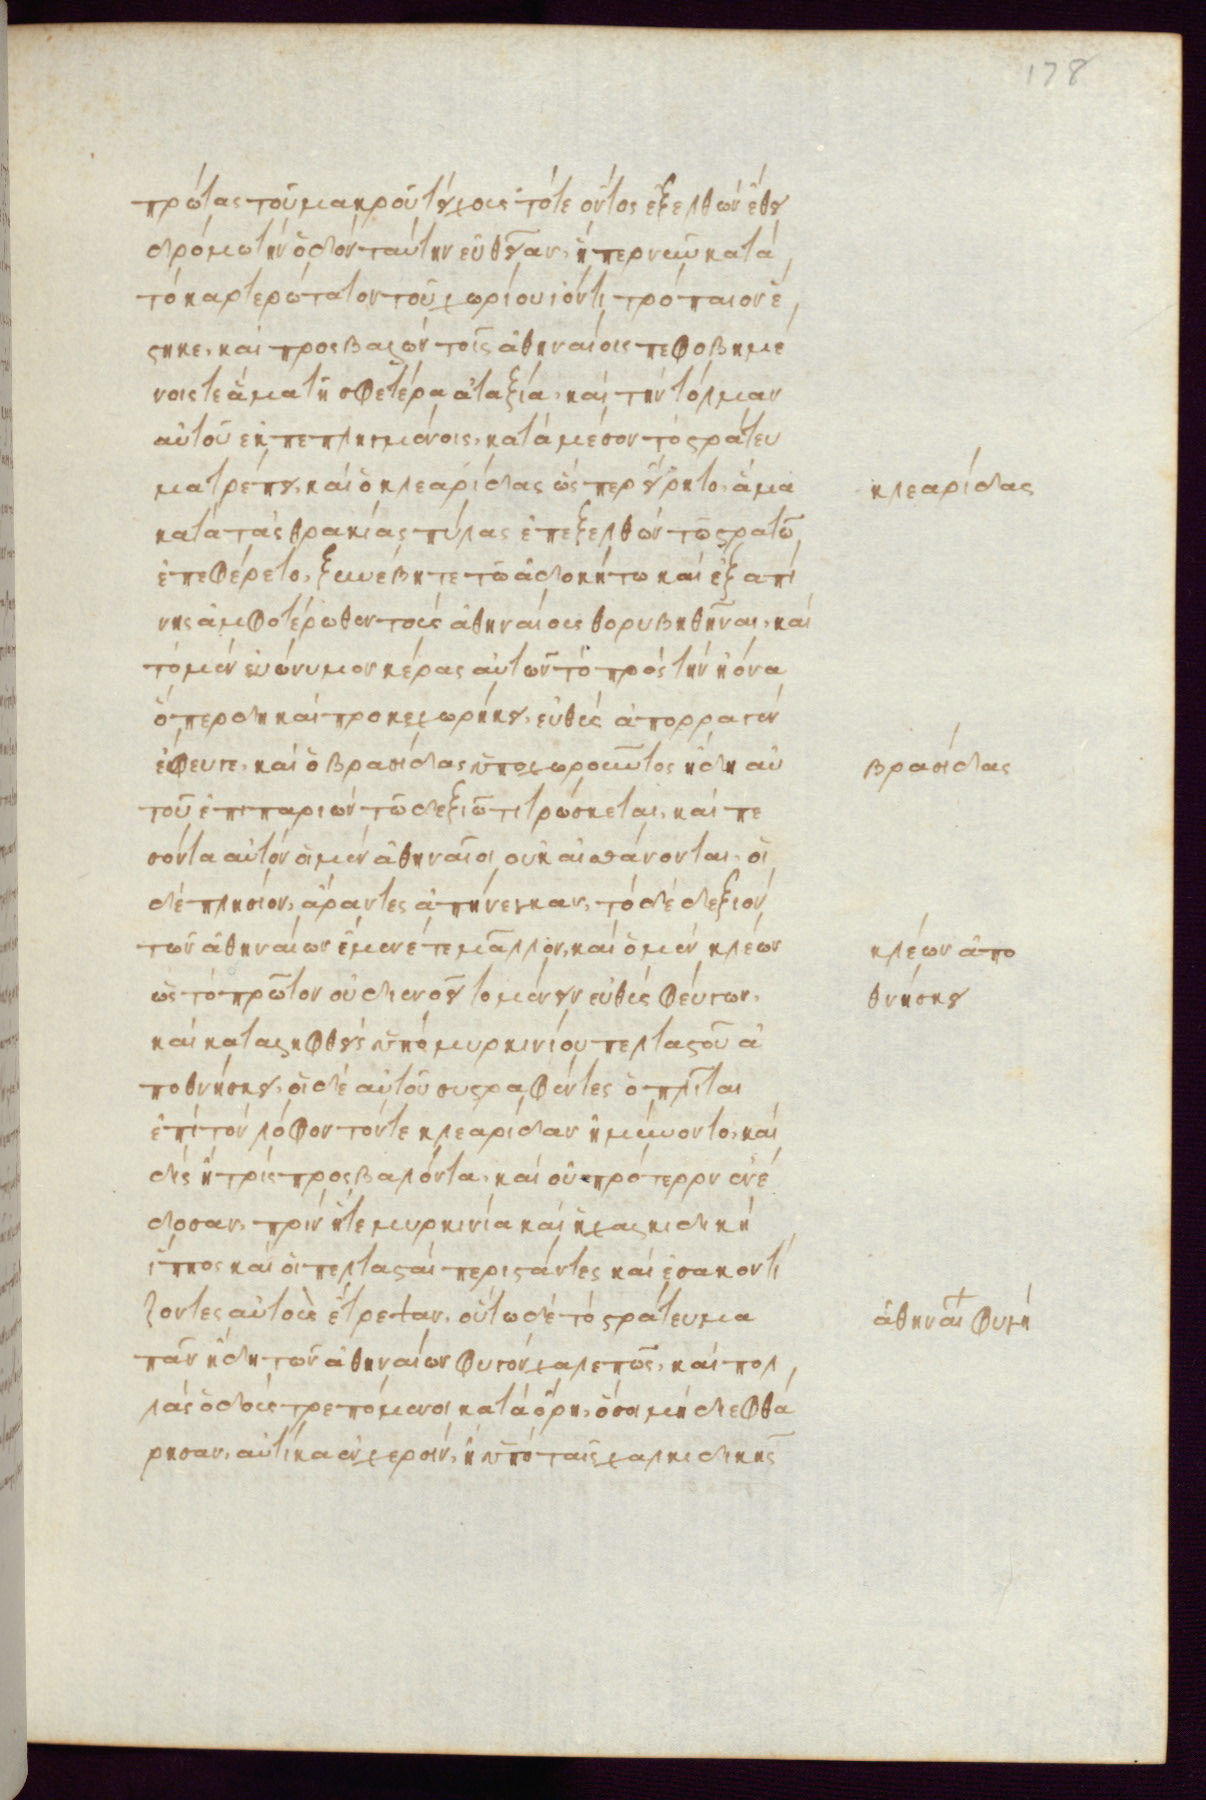 178
πρώτας τοῦ μακροῦ τείχους τότε ὄντος ἐξελθὼν ἔθει
δρόμω τὴν ὁδὸν ταύτην εὐθεῖαν, ἧπερ νῦν κατὰ
τὸ καρτερώτατον τοῦ χωρίου ἰόντι τρόπαιον ἕ
στηκε, καὶ προσβαλὼν τοῖς ἀθηναίοις πεφοβημέ
νοις τε ἅμα τῆ σφετέρα ἀταξία, καὶ τὴν τόλμαν
αὐτοῦ ἐκπεπληγμένοις, κατὰ μέσον τὸ στράτευ
μα τρέπει, καὶ ὁ κλεαρίδας ὥσπερ εἴρητο, ἅμα
κατὰ τὰς θρακίας πύλας ἐπεξελθὼν τῶ στρατῶ
ἐπεφέρετο, ξυνέβη τε τῶ ἀδοκήτω καὶ ἐξαπί
νης ἀμφοτέρωθεν τοὺς ἀθηναίους θορυβηθῆναι, καὶ
τὸ μὲν εὐώνυμον κέρας αὐτῶν τὸ πρὸς τὴν ἠϊόνα
ὅπερ δὴ καὶ προκεχωρήκει, εὐθὺς ἀπορραγὲν
ἔφευγε, καὶ ὁ βρασίδας ὑποχωροῦντος ἤδη αὐ
τοῦ ἐπιπαριὼν τῶ δεξιῶ τιτρώσκεται, καὶ πε
σόντα αὐτὸν οἱ μὲν ἀθηναῖοι οὐκ αἰσθάνονται, οἱ
δὲ πλησίον, ἄραντες ἀπήνεγκαν, τὸ δὲ δεξιὸν
τῶν ἀθηναίων ἔμενέ τε μᾶλλον, καὶ ὁ μὲν κλέων
ὡς τὸ πρῶτον οὐ διενοεῖτο μένειν εὐθὺς φεύγων,
καὶ καταληφθεὶς ὑπὸ μυρκινίου πελταστοῦ ἀ
ποθνήσκει, οἱ δὲ αὐτοῦ συστραφέντες ὁπλῖται
ἐπὶ τὸν λόφον τόν τε κλεαρίδαν ἠμύνοντο, καὶ
δὶς ἢ τρὶς προσβαλόντα, καὶ οὐ πρότερον ἐνέ
δοσαν, πρὶν ἥ τε μυρκινία καὶ ἡ χαλκιδικὴ
ἵππος καὶ οἱ πελτασταὶ περιστάντες καὶ ἐσακοντί
ζοντες αὐτοὺς ἔτρεψαν, οὕτω δὲ τὸ στράτευμα
πᾶν ἤδη τῶν ἀθηναίων φυγὸν χαλεπῶς, καὶ πολ
λὰς ὁδοὺς τρεπόμενοι κατὰ ὄρη, ὅσοι μὴ διεφθά
ρησαν, αὐτίκα ἐν χερσὶν, ἢ ὑπὸ τῆς χαλκιδικῆς
κλεαρίδας
βρασίδας
κλέων ἀπο
θνήσκει
ἀθηναί φυγή